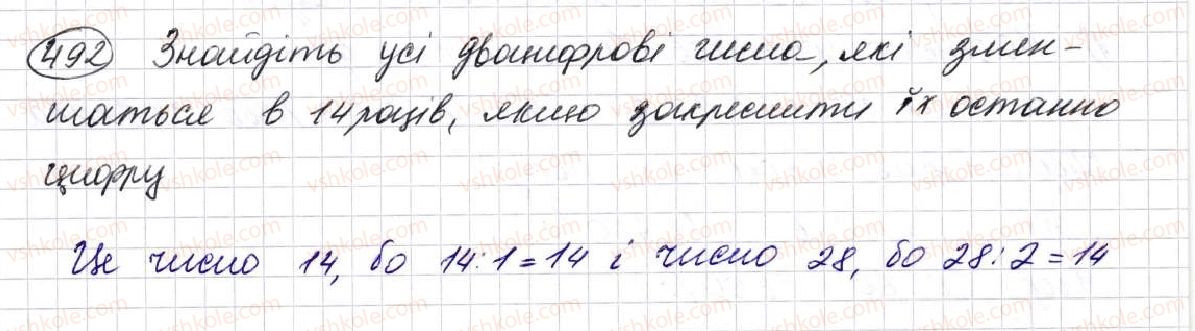 492 Знайдіть усі двоцифрові числа, які змен-
шаться в 14 разів, якщо закреслити їх останню
цифру
Це число 14, бо 14:1=14 і число 28, бо 28:2=14